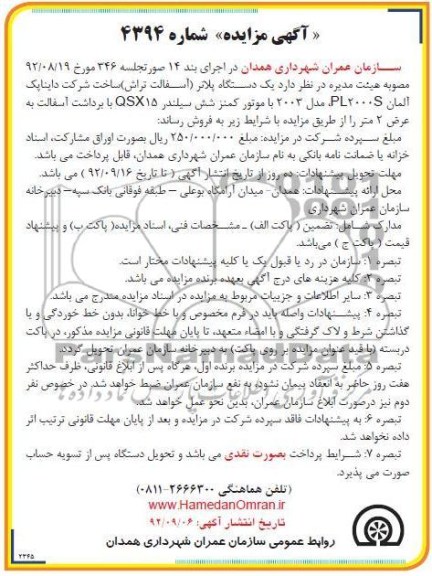 « آگهی مزایده» شماره ۴۳۹۴
سـازمان عمران شهرداری همدان در اجرای بند ۱۴ صورتجلسه ۳۴۶ مورخ ۹۲/۰۸/۱۹
مصوبه هیئت مدیره در نظر دارد یک دستگاه پلانر (آسفالت تراش)ساخت شرکت دایناپک
آلمان PL۲۰۰۰S، مدل ۲۰۰۳ با موتور کمنز شش سیلندر QSX۱۵ با برداشت آسفالت به
عرض ۲ متر را از طریق مزایده با شرایط زیر به فروش رساند:
مبلغ سپرده شرکت در مزایده: مبلغ ۲۵۰/۰۰۰/۰۰۰ ریال بصورت اوراق مشارکت، اسناد
خزانه یا ضمانت نامه بانکی به نام سازمان عمران شهرداری همدان، قابل پرداخت می باشد.
مهلت تحویل پیشنهادات: ده روز از تاریخ انتشار آگهی ( تا تاریخ ۹۲/۰۹/۱۶ ) می باشد.
محل ارائه پیشنهادات: همدان- میدان آرامگاه بوعلی – طبقه فوقانی بانک سپه– دبیرخانه
سازمان عمران شهرداری
مدارک شامل: تضمین ( پاکت الف) ـ مشخصات فنی، اسناد مزایده( پاکت ب) و پیشنهاد
قیمت ( پاکت ج ) می‌باشد.
تبصره ۱: سازمان در رد یا قبول یک یا کلیه پیشنهادات مختار است.
تبصره ۲: کلیه هزینه های درج آگهی بعهده برنده مزایده می باشد.
تبصره ۳: سایر اطلاعات و جزییات مربوط به مزایده در اسناد مزایده مندرج می باشد.
تبصره ۴: پیشنهادات واصله باید در فرم مخصوص و با خط خوانا، بدون خط خوردگی و یا
گذاشتن شرط و لاک گرفتگی و با امضاء متعهد، تا پایان مهلت قانونی مزایده مذکور، در پاکت
دربسته (با قید عنوان مزایده بر روی پاکت) به دبیرخانه سازمان عمران تحویل گردد.
تبصره ۵: مبلغ سپرده شرکت در مزایده برنده اول، هرگاه پس از ابلاغ قانونی، ظرف حداکثر
هفت روز حاضر به انعقاد پیمان نشود، به نفع سازمان عمران ضبط خواهد شد. در خصوص نفر
دوم نیز درصورت ابلاغ سازمان عمران، بدین نحو عمل خواهد شد.
تبصره ۶: به پیشنهادات فاقد سپرده شرکت در مزایده و بعد از پایان مهلت قانونی ترتیب اثر
داده نخواهد شد.
تبصره ۷: شرایط پرداخت بصورت نقدی می باشد و تحویل دستگاه پس از تسویه حساب
صورت می پذیرد.
(تلفن هماهنگی ۲۶۶۶۳۰۰-۰۸۱۱)
www.HamedanOmran.ir
تاریخ انتشار آگهی: ۹۲/۰۹/۰۶
روابط عمومی سازمان عمران شهرداری همدان
۲۳۶۵